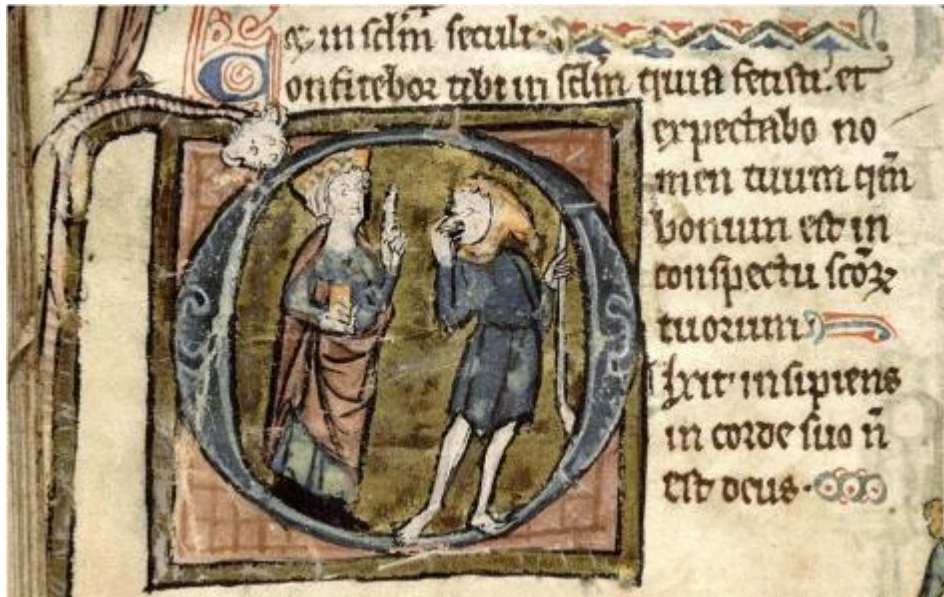 & in sclm seculi
Confitebor tibi in sclm quia fecisti. et
expectabo no
men tuum qm
bonum est in
conspectu scox
tuorum
Dixit insipiens
in corde suo n̄
est deus.